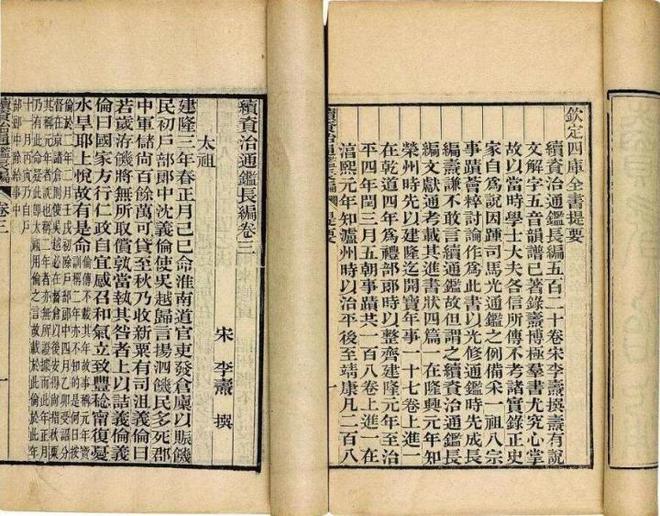 欽定四庫全書提要
續資治通鑑長編五百二十卷宋李燾撰燾有說
文解字五音韻譜已著錄燾博極羣書尤究心掌
故以當時學士大夫各信所傳不考諸實錄正史
家自為說因踵司馬光通鑑之例備采一祖八宗
事蹟薈稡討論作為此書以光修通鑑時先成長
編燾謙不敢言續通鑑故但謂之續資治通鑑長
編文獻通考載其進書狀四篇一在隆興元年知
榮州時先以建隆迄開寶年事一十七卷上進一
在乾道四年為禮部郎時以整齊建隆元年至治
平四年閏三月五朝事蹟共一百八卷上進一在
淳熙元年知瀘州時以治平後至靖康凡二百八
續資治通鑑長編 提要
一
續資治通鑑長編卷三
宋 李燾 撰
太祖
建隆三年春正月己巳命淮南道官吏發倉廩以賑饑
民初戶部郎中沈義倫使吳越歸言揚泗饑民多死郡
中軍儲尚百餘萬可貸至秋乃收新粟有司沮義倫曰
若歲洊饑將無所取償孰當執其咎者上以詰義倫義
倫曰國家方行仁政自宜感召和氣立致豐稔寧復憂
水旱耶上悅故有是命
續資治通鑑長編 卷三
一